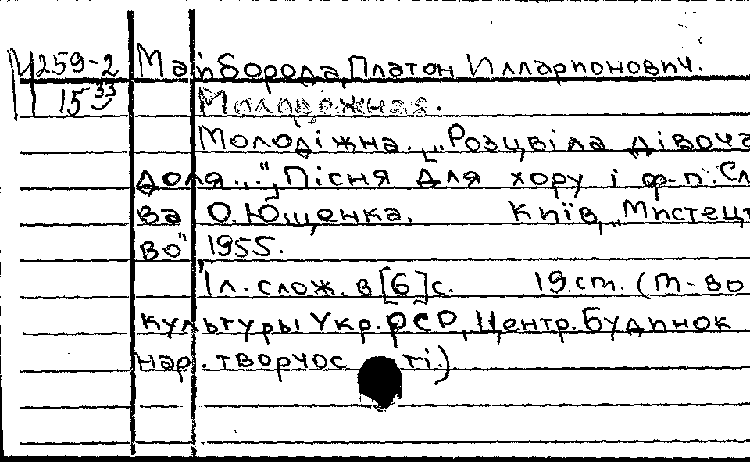 Ц259-2 Майборода, Платон Илларионович.
15 33 Молодежная.
Молодіжна. „Розцвіла дівоча
доля...", Пісня для хору і ф-п. Сл
ва О. Ющенка. Київ, „Мистецт
во" 1955.
1 л. слож. в [6] с. 19 ст. (М-во
культуры Укр. РСР, Центр. будинок
нар. творчос ті.)